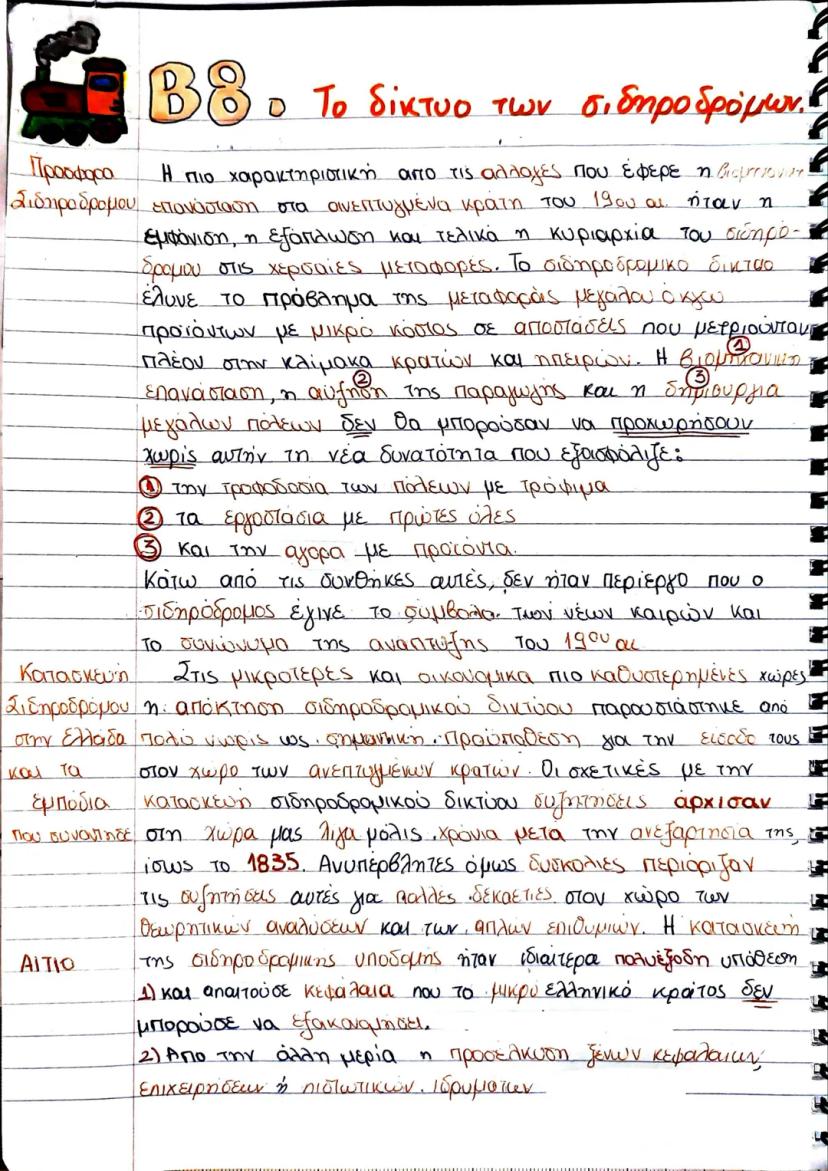 Β8. Το δίκτυο των σιδηροδρόμων.
Προσφορα
Σιδηροδρομου
Η πιο χαρακτηριστική απο τις αλλαγές που έφερε η
επανάσταση στα ανεπτυγμένα κράτη του 19ου αι. ήταν η
εμφάνιση, η εξάπλωση και τελικά η κυριαρχία του σιδηρό-
δρομου στις χερσαίες μεταφορές. Το σιδηροδρομικό δίκτυο
έλυνε το πρόβλημα της μεταφοράς μεγάλου όγκου
προϊόντων με μικρό κόστος σε αποστάσεις που μετριούνταν
πλέον στην κλίμακα κρατών και ηπείρων. Η βιομηχανική ①
επανάσταση, η αύξηση ② της παραγωγής και η δημιουργία ③
μεγάλων πόλεων δεν θα μπορούσαν να προχωρήσουν
χωρίς αυτήν τη νέα δυνατότητα που εξασφάλιζε:
① την τροφοδοσία των πόλεων με τρόφιμα
② τα εργοστάσια με πρώτες ύλες
③ και την αγορα με προϊόντα.
Κάτω από τις συνθήκες αυτές, δεν ήταν περίεργο που ο
σιδηρόδρομος έγινε το σύμβολο των νέων καιρών και
το συνώνυμο της αναπτυξης του 19ου αι
Κατασκευή
Σιδηροδρόμου
στην Ελλαδα
και τα
εμπόδια
που συναντησε
Στις μικρότερες και οικονομικα πιο καθυστερημένες χώρες
η απόκτηση σιδηροδρομικού δικτύου παρουσιάστηκε από
πολύ νωρίς ως σημαντική προϋπόθεση για την είσοδο τους
στον χώρο των ανεπτυγμένων κρατών. Οι σχετικές με την
κατασκευή σιδηροδρομικού δικτύου συζητήσεις άρχισαν
στη χώρα μας λίγα μόλις χρόνια μετα την ανεξαρτησία της,
ίσως το 1835. Ανυπέρβλητες όμως δυσκολίες περιόριζαν
τις συζητήσεις αυτές για πολλές δεκαετίες στον χώρο των
θεωρητικών αναλύσεων και των απλών επιθυμιών. Η κατασκευή
ΑΙΤΙΟ
της σιδηροδρομικης υποδομής ήταν ιδιαίτερα πολυέξοδη υπόθεση
1) και απαιτούσε κεφάλαια που το μικρό ελληνικό κράτος δεν
μπορούσε να εξοικονομήσει.
2) Απο την άλλη μερία η προσέλκυση ξένων κεφαλαιων,
επιχειρήσεων ή πιστωτικών ιδρυμάτων